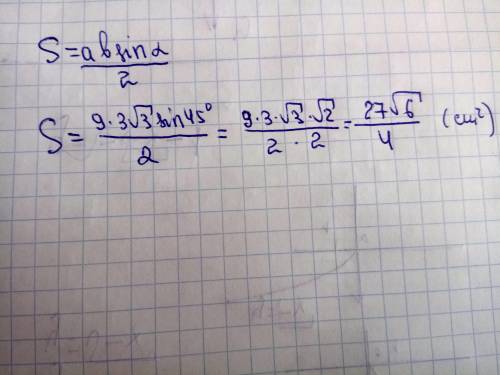 S = ab sin α / 2
S = 9·3√3 sin 45° / 2 = 9·3·√3·√2 / 2·2 = 27√6 / 4 (см²)